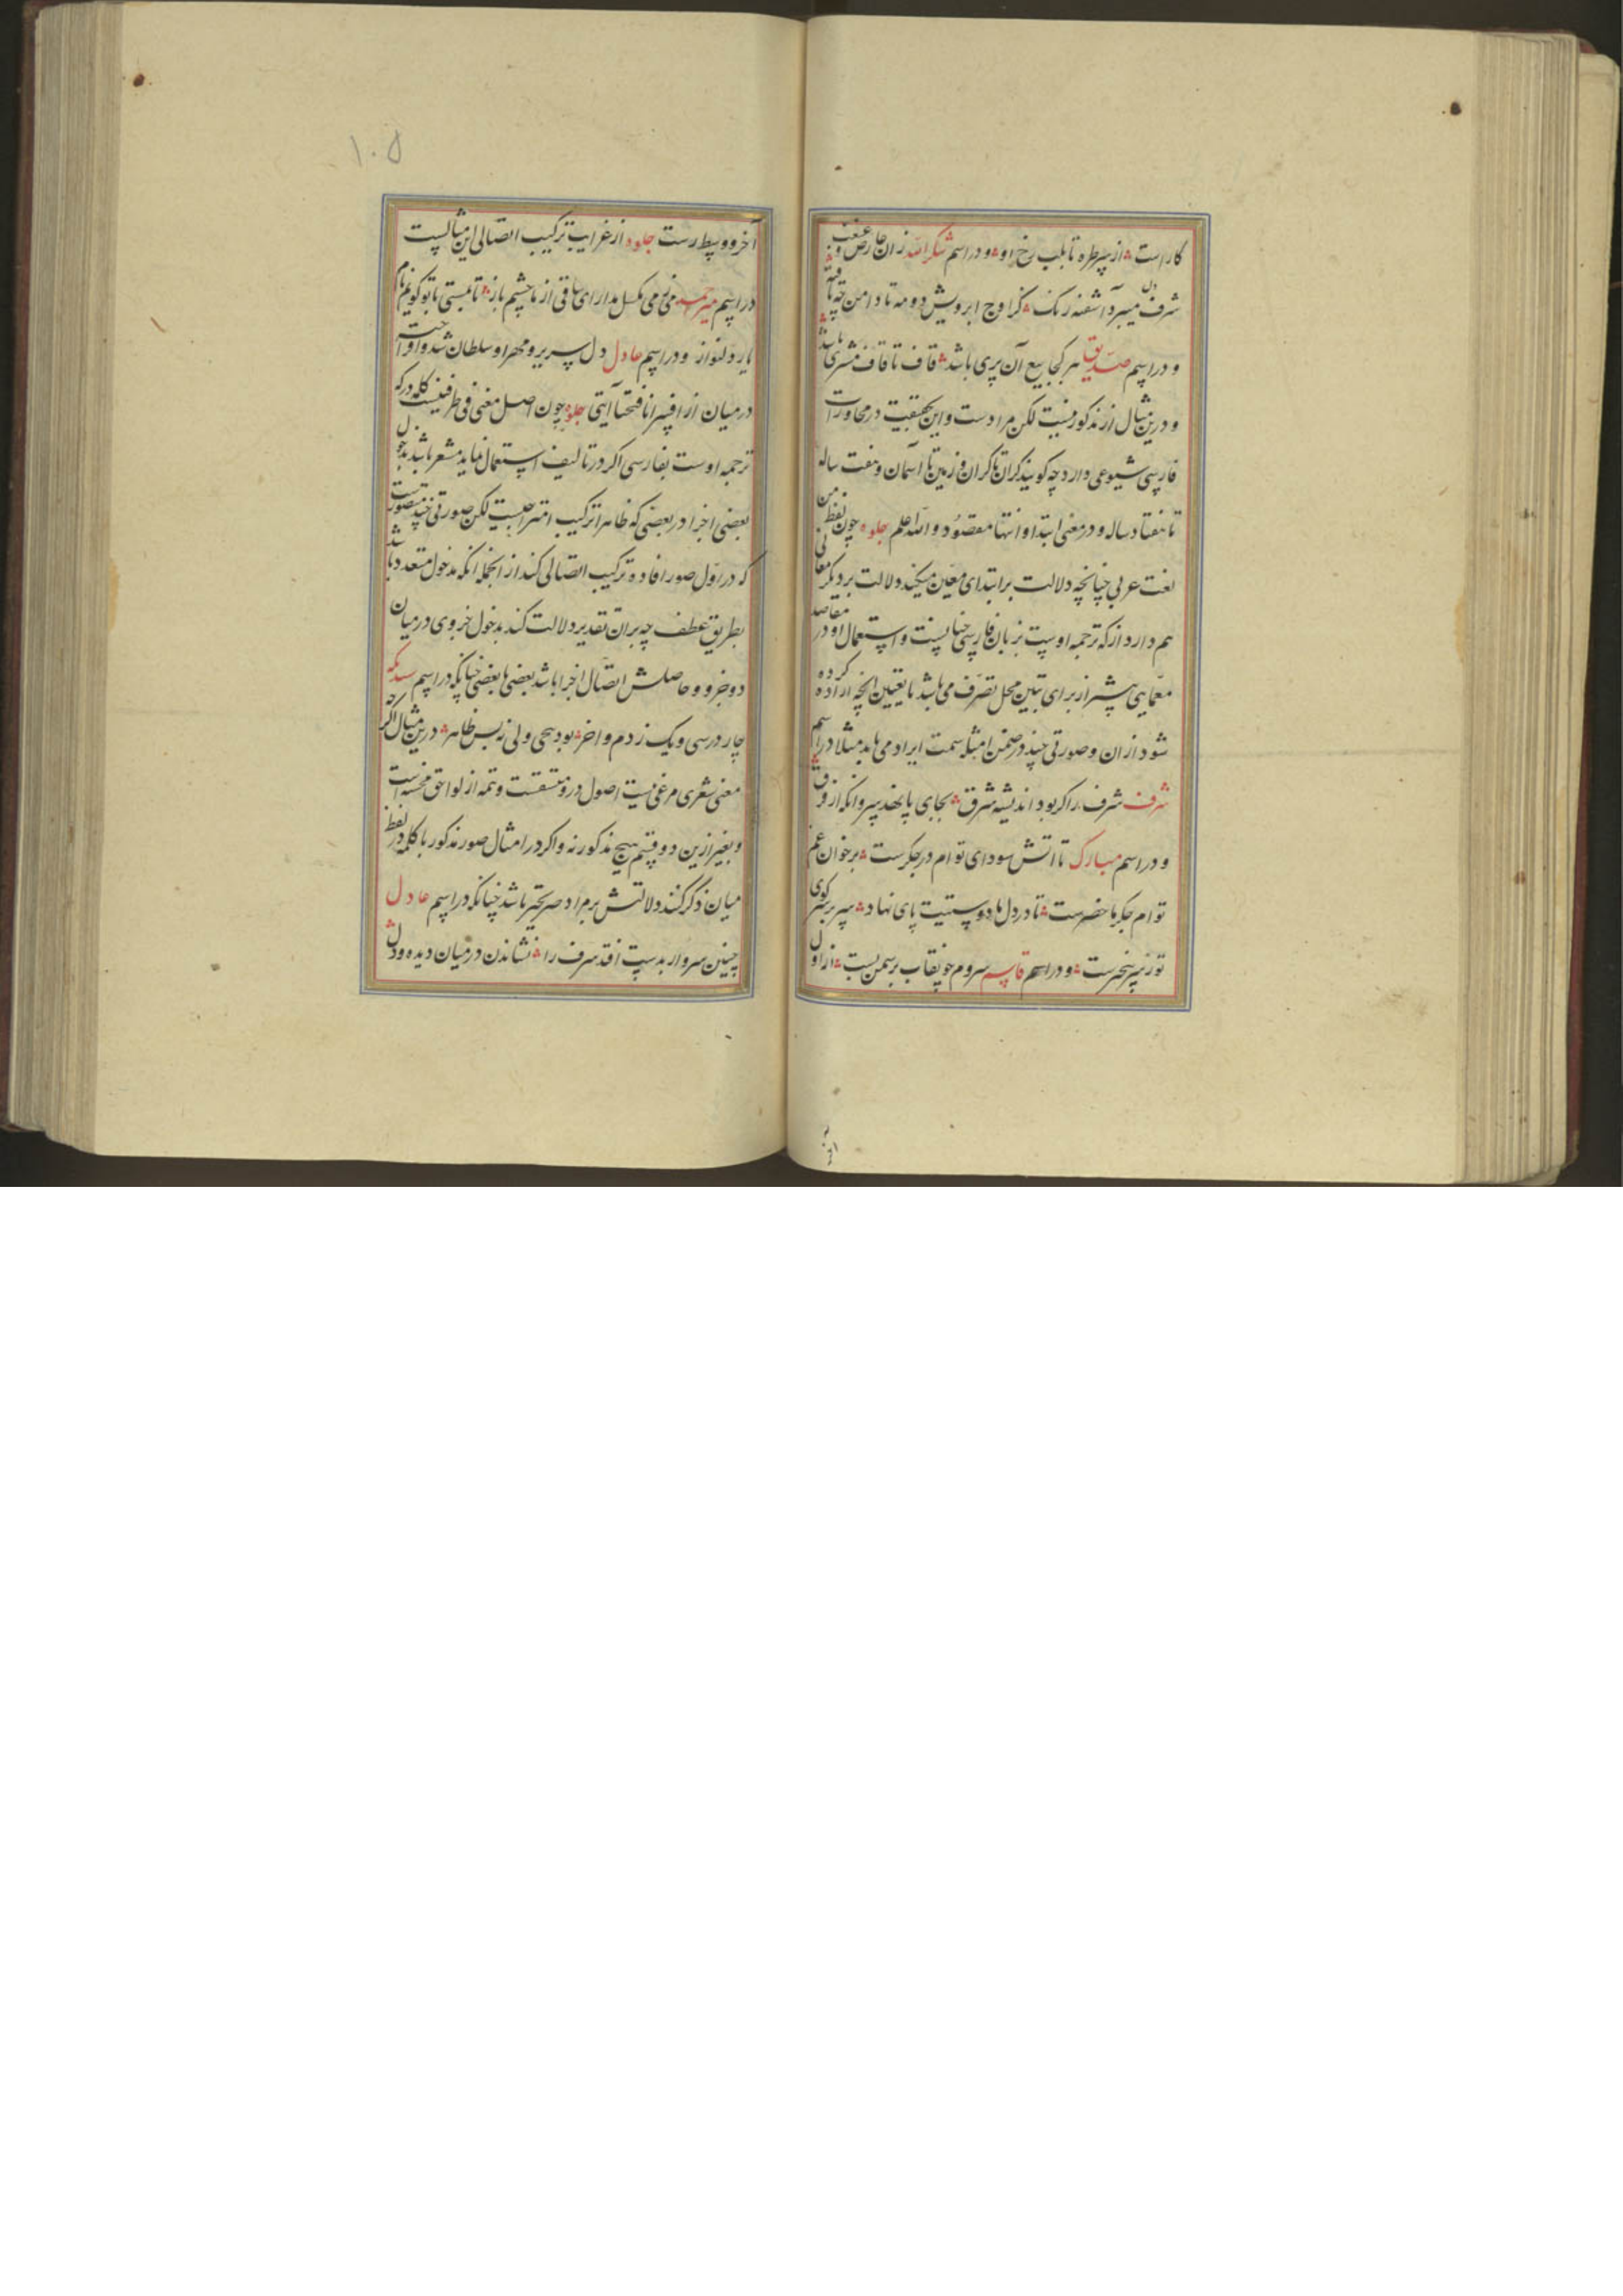 کاراست ؞ از سر طره تا بلب رخ او ؞ و در اسم شکرالله زان عارض و غبغب
شرف دل میبرد آشفته رنک ؞ کز اوج ابرویش دو مه تا دامن چه تافته ؞
و در اسم صدیق هر کجا بیع آن پری باشد ؞ قاف تا قاف مشتری باشد ؞
و درین مثال از مذکور نیست لکن مرادست و این بحقیقت در محاورات
فارسی شیوعی دارد چه کویند کران تا کران و زمین تا آسمان و هفت ساله
تا هفتاد ساله و در معنی ابتدا و انتها مقصود و الله اعلم جلوه چون لفظ من
لغت عربی چنانچه دلالت بر ابتدای معین میکند دلالت بر دیکر معانی
هم دارد از که ترجمه اوست بزبان فارسی چنانست و استعمال او در مقاصد
معمایی بیشتر از برای تبین محل تصرف می باشد یا تعیین آنچه اراده کرده
شود از ان و صورتی چند در ضمن امثله سمت ایراد می یابد مثلا در اسم
شرف شرف را کر بود اندیشه شرق ؞ بجای پا نهد سر وانکه از فرق ؞
و در اسم مبارک تا اتش سودای توام در جکرست ؞ بر خوان غم
توام جکر ما حضرست ؞ تا در دل ما دوستیت پای نهاد ؞ سر بر سر کوی
تو زیر سرست ؞ و در اسم قاسم سروم چو نقاب بر سمن بست ؞ از اول
١٠٥
آخر و وسط رست جلوه از غرایب ترکیب اتصالی این مثالیست
در اسم میرحمید می نمی مکسل مدارای ساقی از ما چشم باز ؞ تا بمستی با تو کویم نام
یار دلنواز و در اسم عادل دل سریر و مهر او سلطان شد و او راحت
در میان از افسر انا فتحنا آیتی جلوه چون اصل معنی فی ظرفیتست کلمه در که
ترجمه اوست بفارسی اکر در تالیف استعمال نماید مشعر باشد بدخول
بعضی اجزا در بعضی که ظاهرا ترکیب امتزاجیست لکن صورتی چند متصورست
که در اول صور افاده ترکیب اتصالی کند از انجمله انکه مدخول متعدد باشد
بطریق عطف چه بران تقدیر دلالت کند بدخول جزوی در میان
دو جزو و حاصلش اتصال اجزا باشد بعضی با بعضی چنانکه در اسم
چار در سی و یک ز دم واخر ؞ بود یحیی ولی ز بس ظاهر ؞ درین مثال اکر چه
معنی شعری مرعی نیست اصول درو متسقست و تتمه از لواحق مخسنه است
و بغیر ازین دو قسم هیچ مذکور نه و اکر در امثال صور مذکور با کلمه در لفظ
میان ذکر کنند دلالتش بر مراد صریحتر باشد چنانکه در اسم عادل
چنین سرو ار بدست افتد شرف را ؞ نشاندن در میان دیده و دل ؞